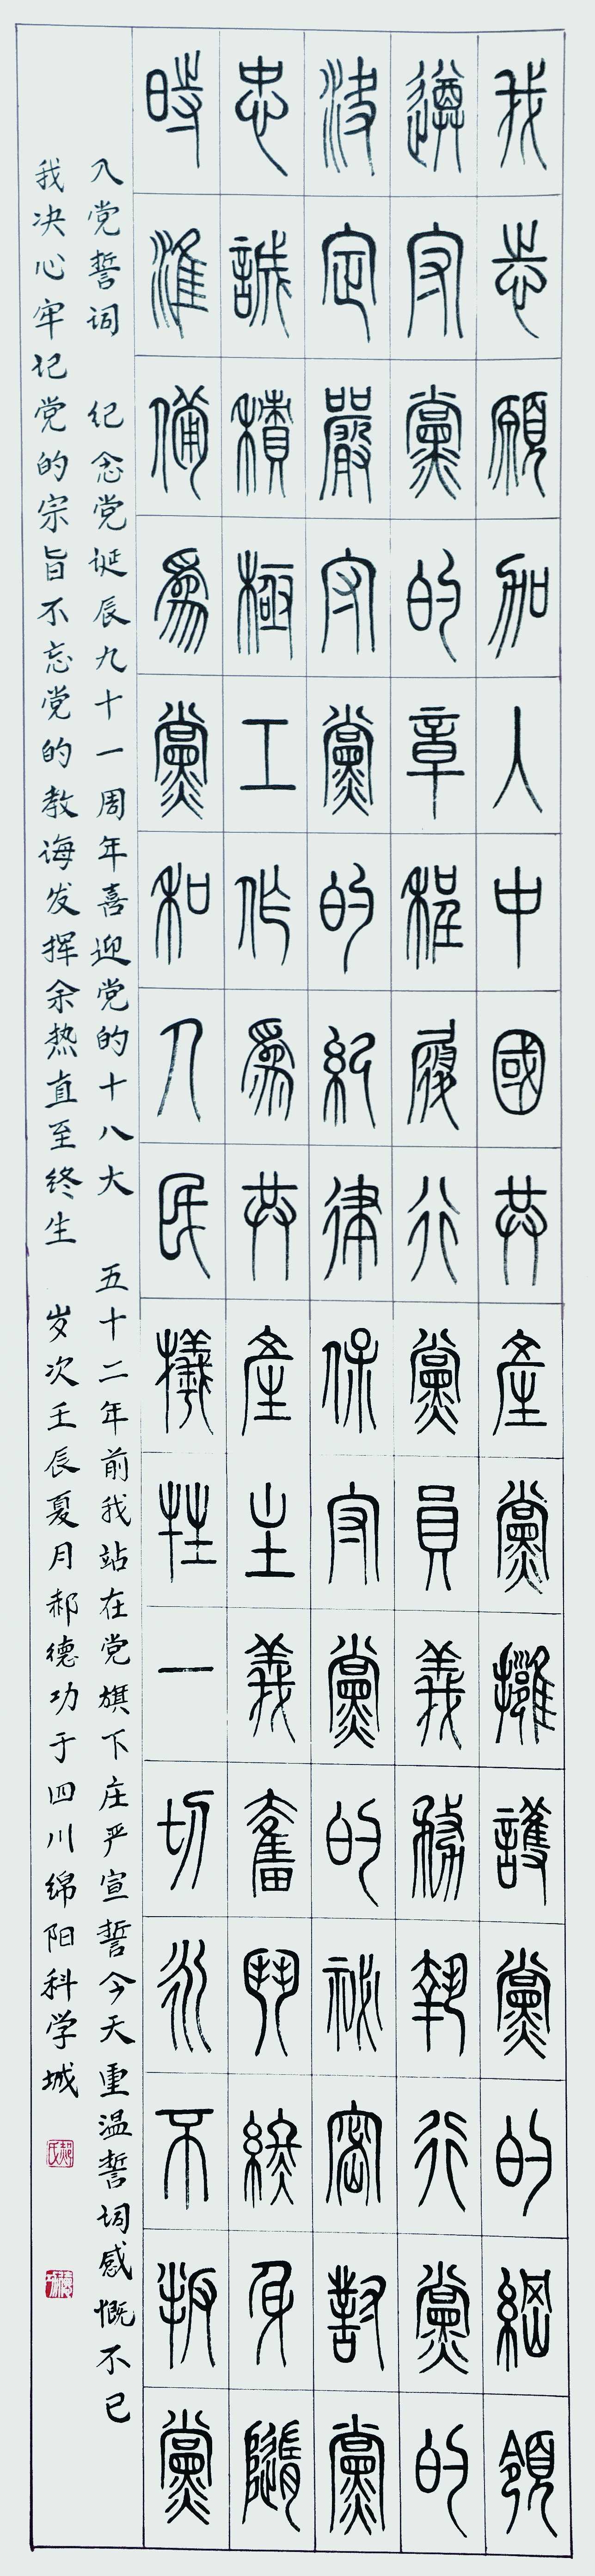 我志願加入中國共產黨擁護黨的綱領
遵守黨的章程履行黨員義務執行黨的
決定嚴守黨的紀律保守黨的祕密對黨
忠誠積極工作爲共產主義奮鬥終身隨
時準備爲黨和人民犧牲一切永不叛黨
入党誓词 纪念党诞辰九十一周年喜迎党的十八大 五十二年前我站在党旗下庄严宣誓今天重温誓词感慨不已
我决心牢记党的宗旨不忘党的教诲发挥余热直至终生 岁次壬辰夏月郝德功于四川绵阳科学城
郝氏
德功